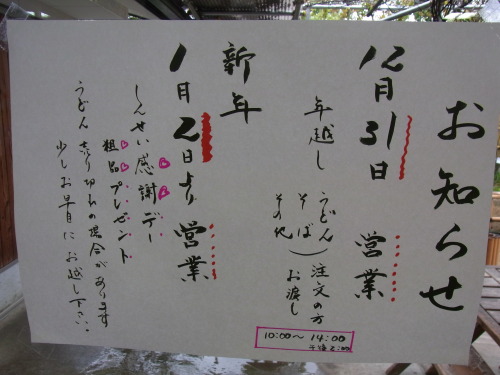 お知らせ
12月31日 営業
年越し うどん そば その他 ) 注文の方 お渡し
10:00〜14:00
午後2:00
新年
1月2日より 営業
しんせい感謝デー
粗品プレゼント
うどん 売り切れの場合があります
少しお早目にお越し下さい。